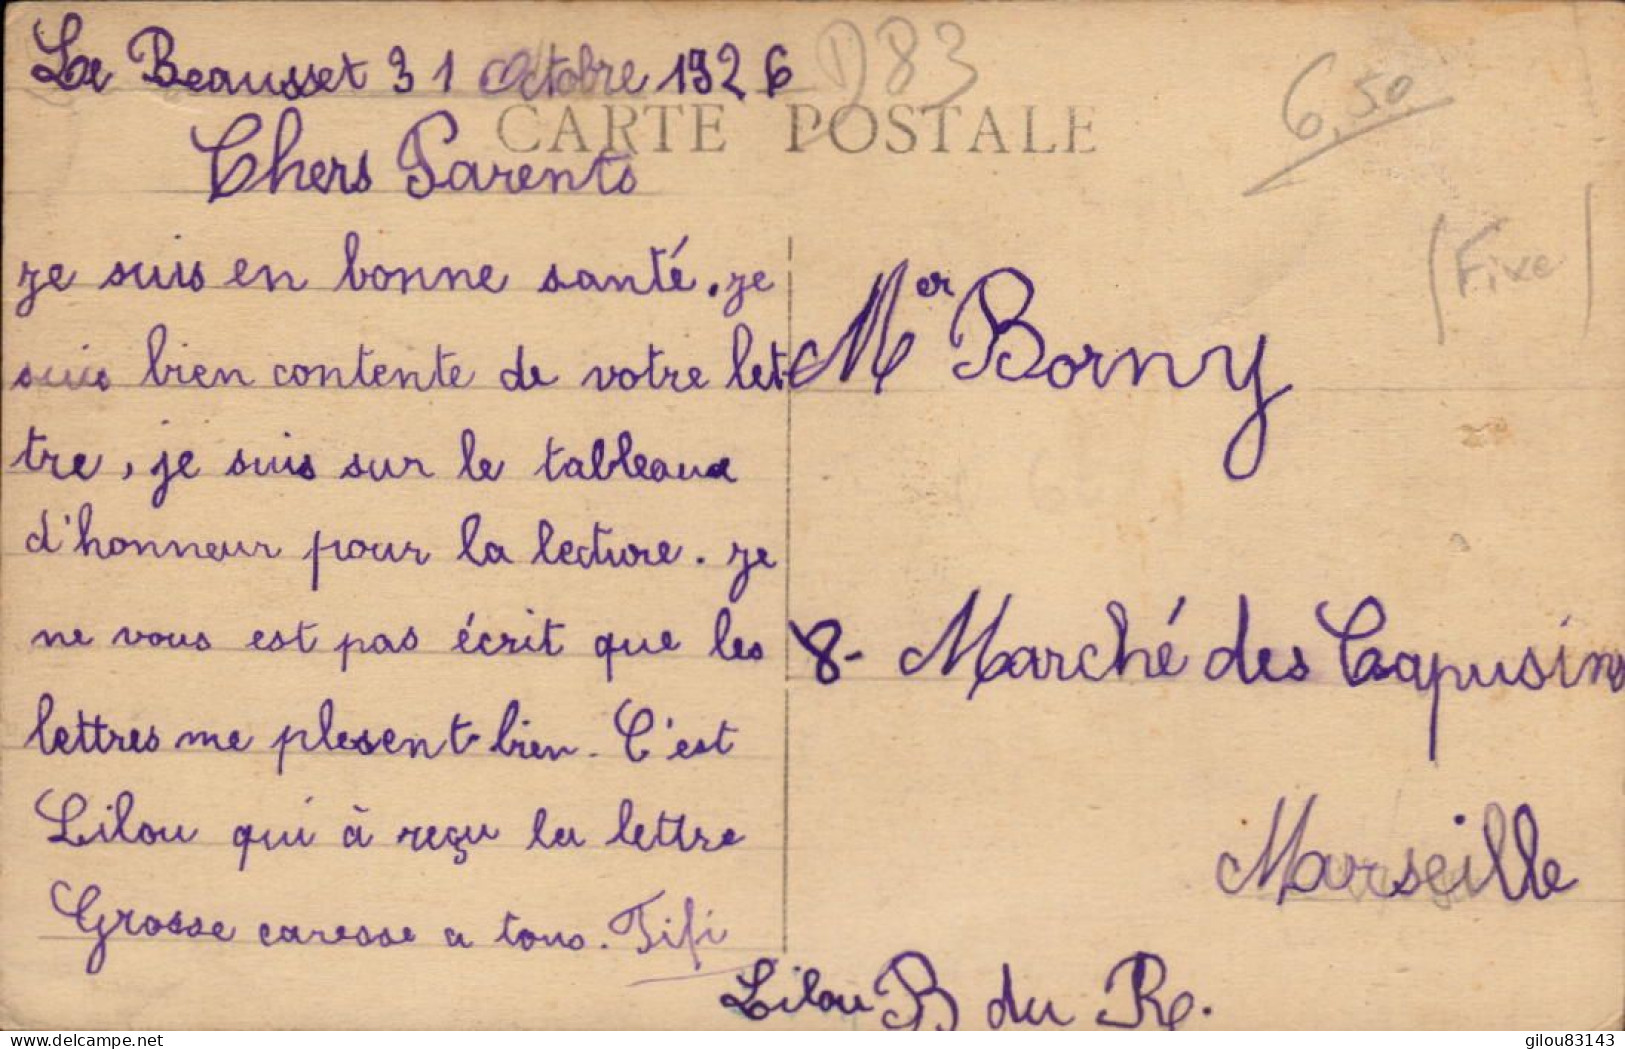 Le Beausset 31 Octobre 1926
D83
CARTE POSTALE
6,50
(Fixe)
Chers Parents
je suis en bonne santé. je
suis bien contente de votre let-
tre, je suis sur le tableaux
d'honneur pour la lecture. je
ne vous est pas écrit que les
lettres me plesent bien. C'est
Lilou qui à reçu la lettre
Grosse caresse a tous. Fifi
Lilou B du R.
Mer Borny
8- Marché des Capusins
Marseille
delcampe.net
gilou83143